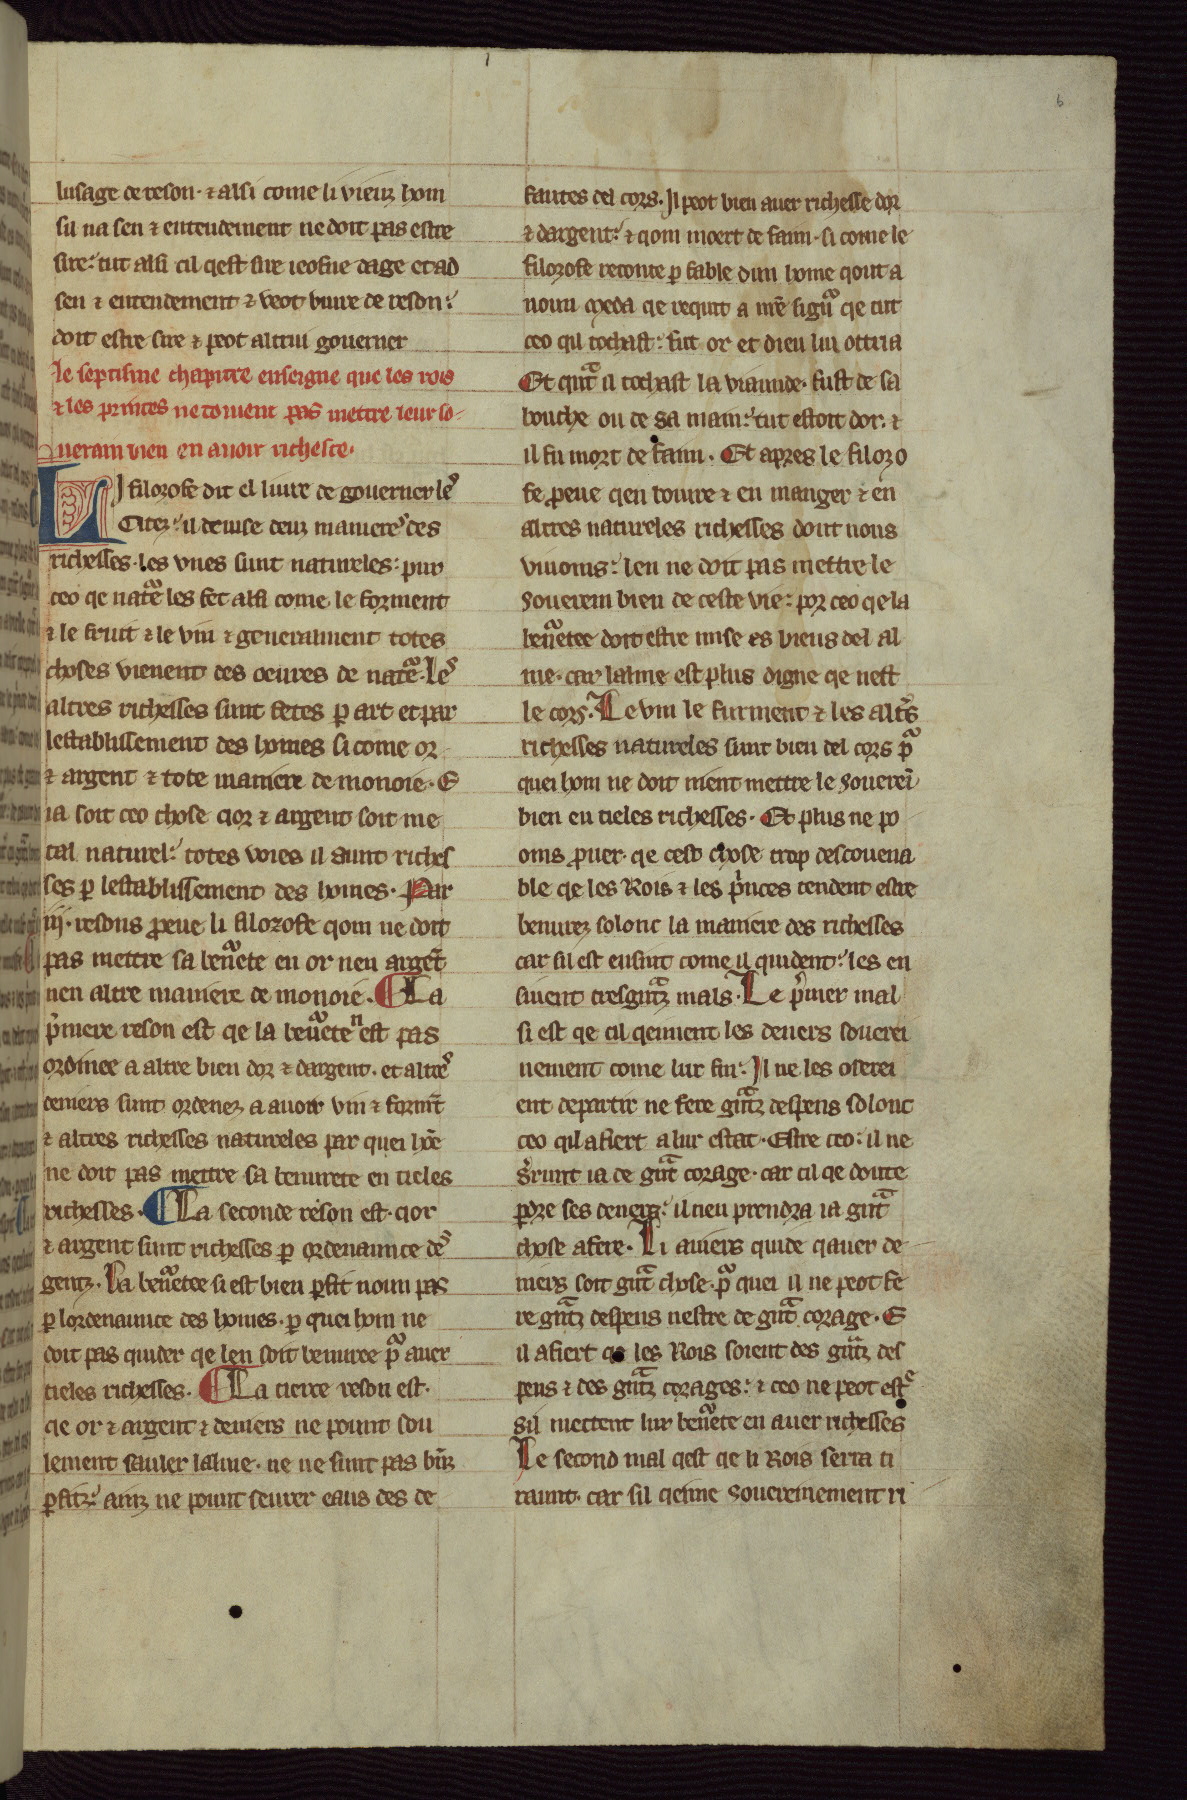 6
lusage de reson · ⁊ alsi come li vieuz hom
sil na sen ⁊ entendement ne doit pas estre
sire: tut alsi cil qest sire ieofne dage et ad
sen ⁊ entendement ⁊ veot viure de reson:
doit estre sire ⁊ peot altrui gouerner
le septisme chapitre enseigne que les rois
⁊ les princes ne doiuent pas mettre leur so-
uerain bien en auoir richesce.
LI filozofe dit el liure de gouerner les
Citez: il deuise deuz manieres des
richesses. les vnes sunt natureles: pur
ceo qe natᵃe les fet alsi come le forment
⁊ le fruit ⁊ le vin ⁊ generaument totes
choses vienent des oeures de natᵃe. les
altres richesses sunt fetes ꝑ art et par
lestablissement des homes si come or
⁊ argent ⁊ tote maniere de monoie. E
ia soit ceo chose qor ⁊ argent soit me
tal naturel: totes voies il sunt riches
ses ꝑ lestablissement des homes. Par
iij. resons ꝓeue li filozofe qom ne doit
pas mettre sa benᵃete en or nen argēt
nen altre maniere de monoie. La
pͥmere reson est qe la benᵃete nest pas
ordinee a altre bien dor ⁊ dargent. et altres
deniers sunt ordenez a auoir vin ⁊ formēt
⁊ altres richesses natureles par quei hōe
ne doit pas mettre sa benurete en tieles
richesses. La seconde reson est. qor
⁊ argent sunt richesses ꝑ ordenaunce des
genz. La benᵃetee si est bien ꝑfit noun pas
ꝑ lordenaunce des homes. ꝑ quei hom ne
doit pas quider qe len soit benuree pᵃ auer
tieles richesses. La tierce reson est.
qe or ⁊ argent ⁊ deniers ne pount sou
lement sauler lalme. ne ne sunt pas biēz
ꝑfitz: ainz ne pount seurer eaus des de
fautes del cors. Il peot bien auer richesse dor
⁊ dargent: ⁊ qom moert de faim. si come le
filozofe reconte ꝑ fable dun home qout a
noun Meda qe requit a nr̄e sigᵃ qe tut
ceo qil tochast: fut or et dieu lui ottria
Et qᵃnt il tochast la viaunde. fust de sa
bouche ou de sa main: tut estoit dor. ⁊
il fu mort de faim. Et apres le filozo
fe ꝓeue qen boiure ⁊ en manger ⁊ en
altres natureles richesses dont nous
viuoms: len ne doit pas mettre le
souerein bien de ceste vie: por ceo qe la
benᵃetee doit estre mise es biens del al
me. car lalme est plus digne qe nest
le cors. Le vin le furment ⁊ les altres
richesses natureles sunt bien del cors pᵃ
quei hom ne doit mient mettre le souerēi
bien en tieles richesses. Et plus ne po
oms ꝓuer. qe cest chose trop descouena
ble qe les Rois ⁊ les pͥnces tendent estre
benurez solonc la maniere des richesses
car sil est ensint come il quident: les en
siuent tresgᵃntz mals. Le pͥmer mal
si est qe cil qeiment les deners souerei
nement come lur fin: Il ne les oserei
ent departir ne fere gᵃntz despens solonc
ceo qil afiert a lur estat. Estre ceo: il ne
srunt ia de gᵃnt corage. car cil qe doute
ꝑdre ses deners: il nen prendra ia gᵃnt
chose a fere. Li auiers quide qauer de
niers soit gᵃnt chose. pᵃ quei il ne peot fe
re gᵃntz despens nestre de gᵃnt corage. E
il afiert qe les Rois soient des gᵃntz des
pens ⁊ des gᵃntz corages: ⁊ ceo ne peot estᵉ
sil mettent lur benᵃete en auer richesses
Le second mal qest qe li Rois serra ti
raunt. car sil qeime souereinement ri